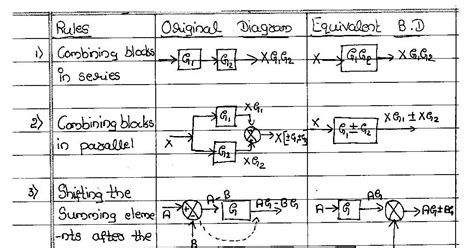 Rules Original Diagram Equivalent B.D
1) Combining blocks in series
G1 G2 X G1 G2
X G1 G2 X G1 G2
2) Combining blocks in parallel
X G1 XG1
G2 XG2
X G1 ± G2 XG1 ± XG2
3) Shifting the
Summing eleme
-nts after the
A A-B G AG-BG
B
A G AG AG±BG